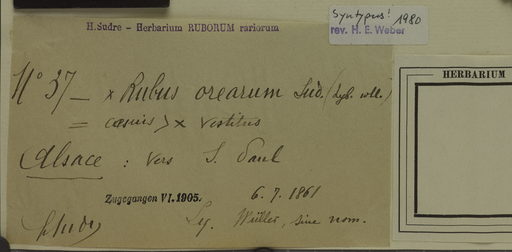 Syntypus! 1980
rev. H. E. Weber
H. Sudre - Herbarium RUBORUM rariorum
HERBARIUM
N° 37 - × Rubus orearum Sud. (hyb. coll.)
= cæsius > × vestitus
Alsace : vers S. Paul
Zugegangen VI. 1905.
6. 7. 1861
Leg. Müller, sine nom.